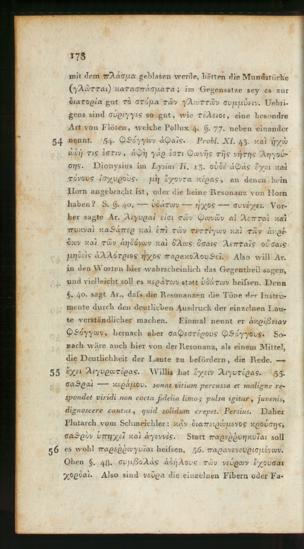 178
mit dem πλάσμα geblasen werde, hätten die Mundstücke
(γλῶτται) κατασπάσματα; im Gegensatze sey es zur
διατορία gut τὸ στόμα τῶν γλωττῶν συμμύειν. Uebri-
gens sind σύριγγες so gut, wie τέλειοι, eine besondre
Art von Flöten, welche Pollux 4. §. 77. neben einander
54 nennt. 54. Φθόγγων ἁφαῖς. Probl. XI. 43. καὶ ἠχὼ
ἁφή τις ἐστιν, ἁφὴ γάρ ἐστι φωνῆς τῆς νήτης ληγού-
σης. Dionysius im Lysias II. 13. οὐδὲ ἁφὰς ἔχει καὶ
τόνους ἰσχυρούς. μὴ ἔχοντα κέρας, an denen kein
Horn angebracht ist, oder die keine Resonanz von Horn
haben? S. §. 40. — ὑδάτων — ἦχος — συνέχει. Vor-
her sagte Ar. λιγυραὶ εἰσι τῶν φωνῶν αἱ λεπταὶ καὶ
πυκναὶ καθάπερ καὶ ἐπὶ τῶν τεττίγων καὶ τῶν ἀκρί-
δων καὶ τῶν ἀηδόνων καὶ ὅλως ὅσαις λεπταῖς οὔσαις
μηδεὶς ἀλλότριος ἦχος παρακολουθεῖ. Also will Ar.
in den Worten hier wahrscheinlich das Gegentheil sagen,
und vielleicht soll es κεράτων statt ὑδάτων heißen. Denn
§. 40. sagt Ar., daß die Resonanzen die Töne der Instru-
mente durch den deutlichen Ausdruck der einzelnen Lau-
te verständlicher machen. Einmal nennt er ἀκρίβειαν
φθόγγων, hernach aber σαφεστέρους φθόγγους. So-
nach wäre auch hier von der Resonanz, als einem Mittel,
die Deutlichkeit der Laute zu befördern, die Rede. —
55 ἔχει λιγυρωτέρας. Willis hat ἔχειν λιγυτέρας. 55.
σαθραὶ — κεράμου. sonat vitium percussa et maligne re-
spondet viridi non cocta fidelia limo; pulsa igitur, juvenis,
dignoscere cautus, quid solidum crepet. Persius. Daher
Plutarch vom Schmeichler: κἂν διαπειρώμενος κρούσῃς,
σαθρὸν ὑπηχεῖ καὶ ἀγεννές. Statt παρεῤῥυηκυῖαι soll
56 es wohl παρεῤῥωγυῖαι heißen. 56. παρανενευρισμένων.
Oben §. 48. συμβολὰς ἀδήλους τῶν νεύρων ἔχουσαι
χορδαί. Also sind νεῦρα die einzelnen Fibern oder Fa-